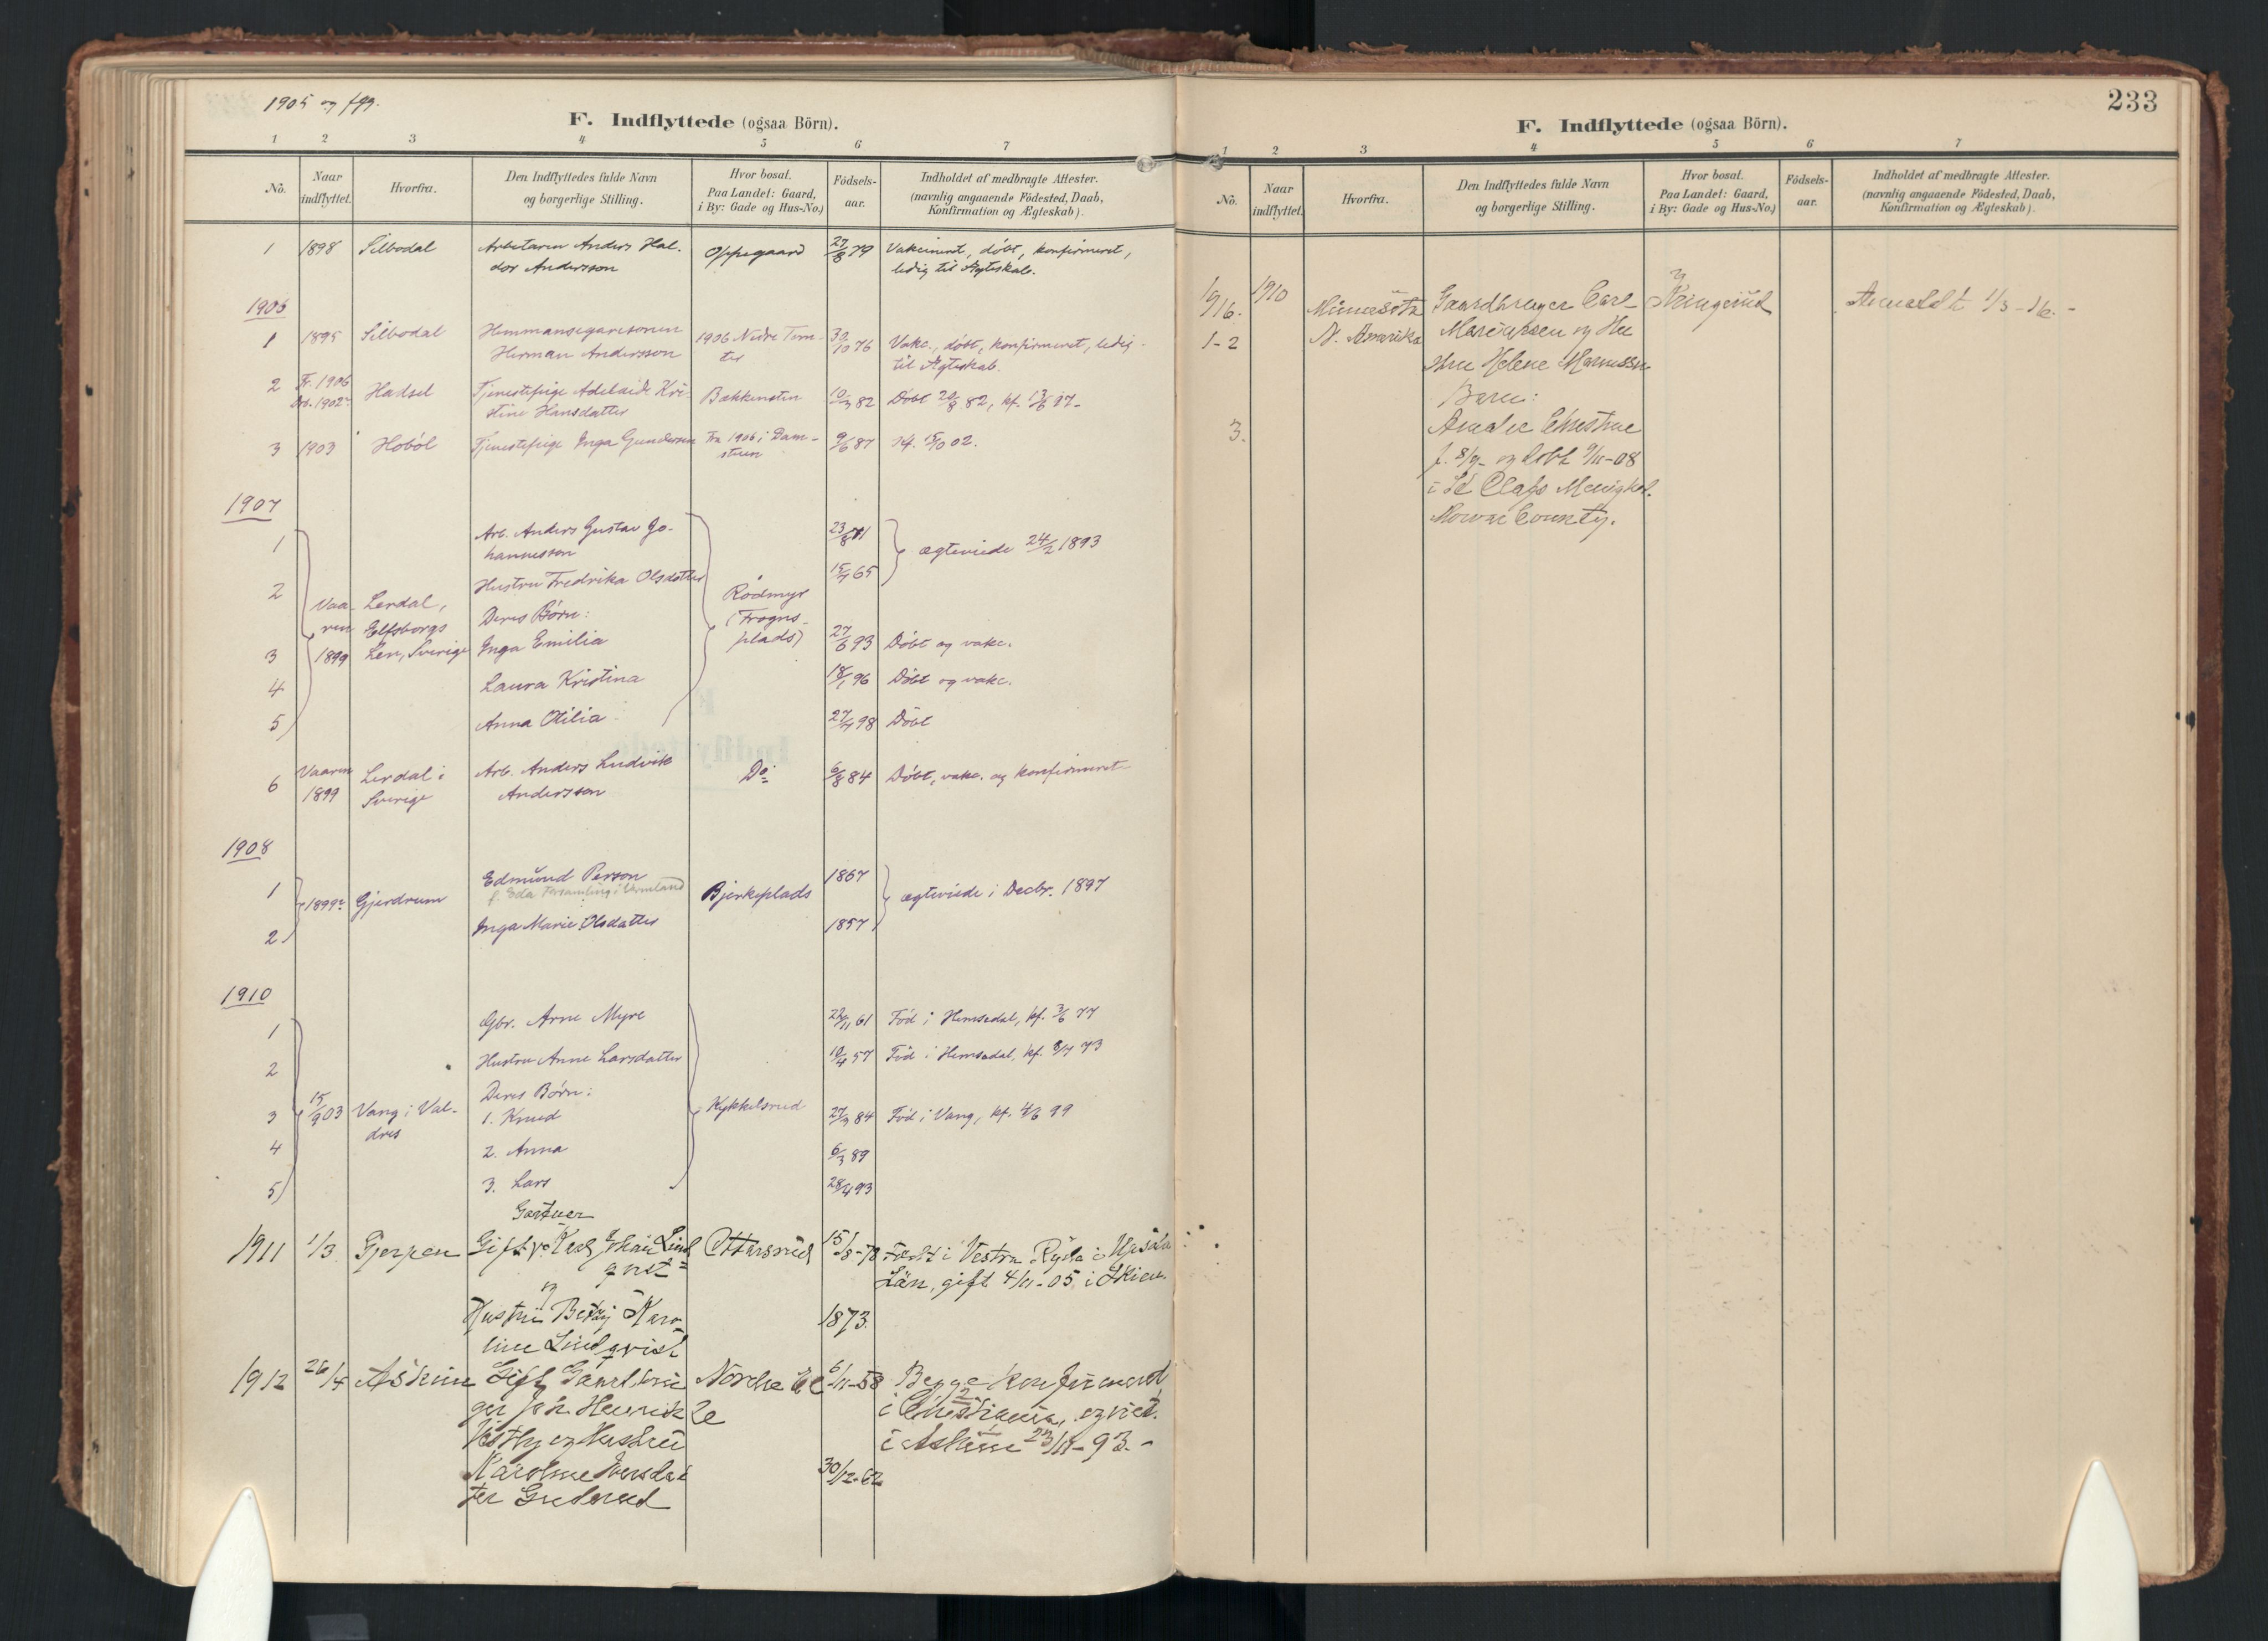 1905 og flg.
F. Indflyttede (ogsaa Börn).
1 2 3 4 5 6 7
No. Naar indflyttet. Hvorfra. Den Indflyttedes fulde Navn og borgerlige Stilling. Hvor bosat. Paa Landet: Gaard, i By: Gade og Hus-No.) Födsels-aar. Indholdet af medbragte Attester. (navnlig angaaende Födested, Daab, Konfirmation og Ægteskab).
1 1898 Silbodal Arbetaren Anders Hal- Oppegaard 27/8 79 Vakcineret, döbt, konfirmeret,
dor Andersson ledig til Ægteskab.
1906
1 1895 Silbodal Hemmansegaresonen 1906 Nedre 30/10 76 Vakc., döbt, konfirmeret, ledig
Herman Andersson til Ægteskab.
2 Fr. 1906 Hadsel Tjenestepige Adelaide Kri- Bakkensten 10/3 82 Döbt 20/8 82, kf. 13/6 97.
stine Hansdatter
3 1903 Hoböl Tjenestepige Inga Gundersen Fra 1906 i Dam- 9/6 87 kf. 5/10 02.
1907
1 Arb. Anders Gustav Jo- 23/8 71
hannesson ægteviede 24/2 1893
2 Hustru Fredrika Olsdatter 15/7 65
Vaa- Lerdal, Deres Börn: Rödmyr
ren Elfsborgs (Frogns-
3 1899 Len, Sverige Inga Emilia plads) 27/6 93 Döbt og vakc.
4 Laura Kristina 18/1 96 Döbt og vakc.
5 Anna Otilia 27/4 98 Döbt
6 Vaaren Lerdal i Arb. Anders Ludvik Do. 6/8 84 Döbt, vakc. og konfirmeret
1899 Sverige Andersson
1908
1 Edmund Person 1867
1899 Gjerdrum f. Eda Församling i Vermland Bjerkeplads ægteviede i Decbr. 1897
2 Inga Marie Olsdatter 1857
1910
1 Gbr. Arne Myre 22/11 61 Föd i Hemsedal, kf. 3/6 77
2 Hustru Anne Larsdatter 10/4 57 Föd i Hemsedal, kf. 8/7 73
Deres Börn:
3 15/9 03 Vang i Val- 1. Knud Kykkelsrud 27/3 84 Föd i Vang, kf. 4/6 99
dres
4 2. Anna 6/3 89
5 3. Lars 28/4 93
Gartner
1911 1/3 Gjerpen Gift Karl Johan Lind- Ottarsrud 15/8-78 Född i Vestra Ryda i Upsala
qvist Län, gift 4/11-05 i Skien.
og
Hustru Betty Karo- 1873.
line Lindqvist
1912 26/4 Askim Gift Gaardbru- Nordre 6/11-58 Begge konfirmeret
ger Joh. Henrik i Christiania, og viet
Vestby og Hustru i Askim 23/11-93.-
Karoline Iversdat- 30/12-62
ter Guderud
233
F. Indflyttede (ogsaa Börn).
1 2 3 4 5 6 7
No. Naar indflyttet. Hvorfra. Den Indflyttedes fulde Navn og borgerlige Stilling. Hvor bosat. Paa Landet: Gaard, i By: Gade og Hus-No.) Födsels-aar. Indholdet af medbragte Attester. (navnlig angaaende Födested, Daab, Konfirmation og Ægteskab).
1916. 1910 Minnesota Gaardbruger Carl Kringerud Anmeldt 1/3-16.-
1-2 N. Amerika Mariussen og Hu-
stru Helene Mariussen
Barn:
3. Amalie Christine
f. 8/9- og döbt 9/11-08
i St. Olafs Menighed.
Mower County.